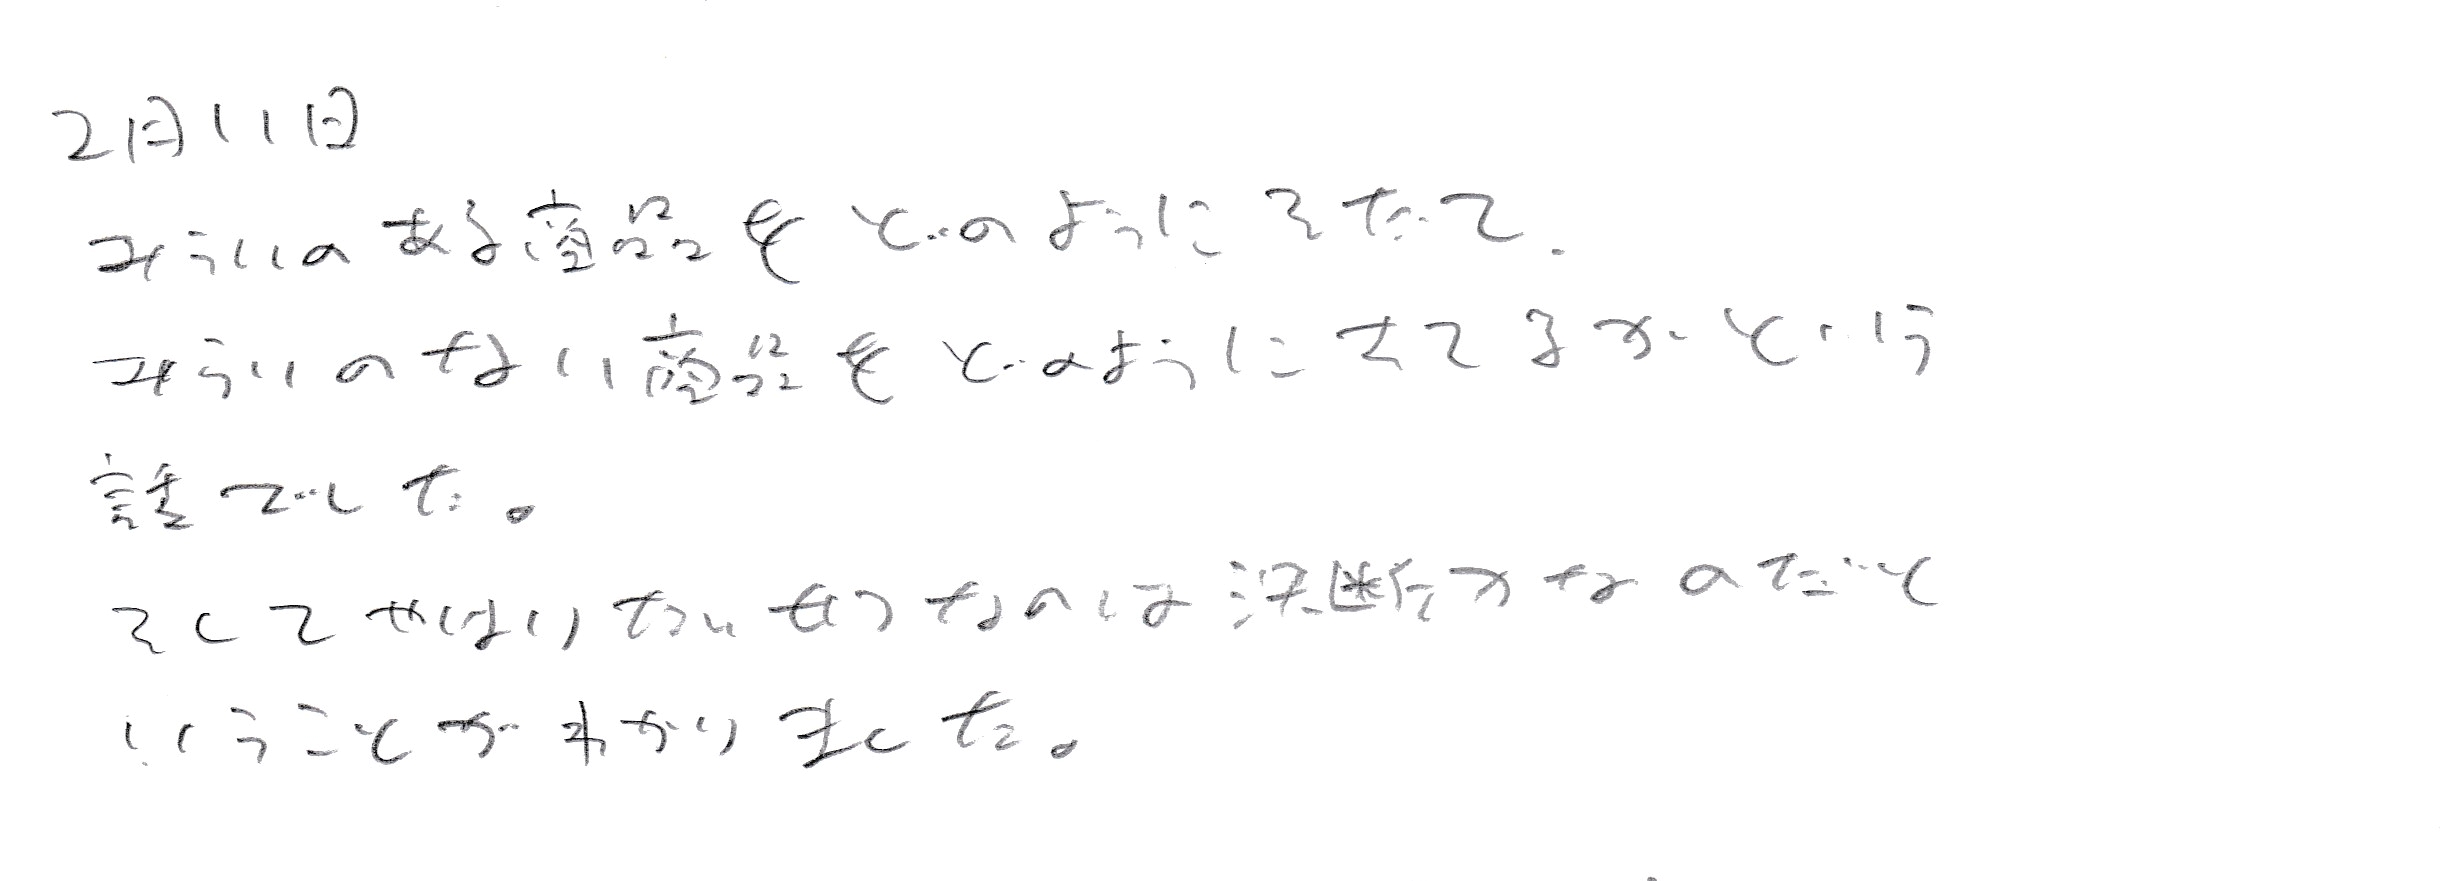 2月11日
みらいのある商品をどのようにそだて、
みらいのない商品をどのようにすてるかという
話でした。
そしてやはりたいせつなのは決断力なのだと
いうことがわかりました。